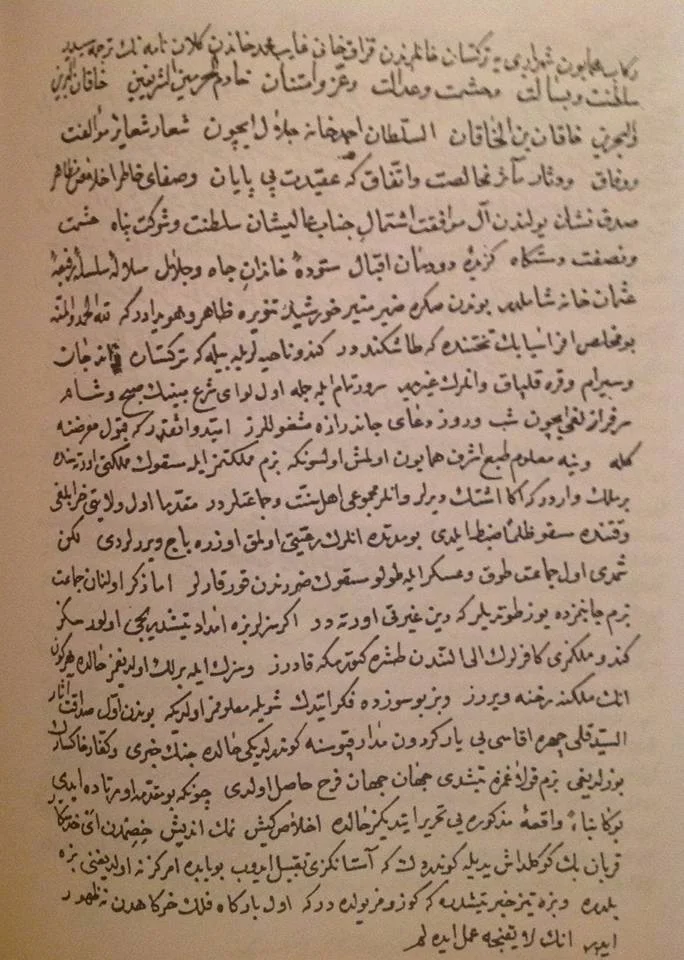 ركاب همايون شهريارى يه تركستان خانلرندن قزاق خانى غايب محمد خاندن كلان نامه نك ترجمه سيدر
سلطنت وبسالت وحشمت وعدالت وعز وامتنان خادم الحرمين الشريفين خاقان البرين
والبحرين خاقان بن الخاقان السلطان احمد خانه جلال ايچون شعار شعاير مؤالفت
ووفاق ودثار مآثر مخالصت واتفاق كه عقيدت بي پايان وصفاى خاطر اخلاص مظاهر
صدق نشان يولندن آل موافقت اشتمال جناب عاليشان سلطنت وشوكت پناه حشمت
ونصفت دستكاه كزيدهٔ دودمان اقبال ستودهٔ خاندان جاه وجلال سلاله سلسلهٔ رفيعهٔ
عثمان خانه شاملدر بوندن صكره ضمير منير خورشيد تنويره ظاهر وهويدادر كه لله الحمد والمنه
بو مخلص افراسيابك تختنده كه طاشكنددر كندو ناحيه لريله بيله كه تركستان واندجان
وسيرام وقره قلپاق وانلرك غيريدر سرور تام ايله جمله اول لواى شرع مبينك صبح وشام
سرفرازلغى ايچون شب وروز دعاى جاندرازه مشغوللرز اميد واثقدر كه قبول معرضنه
كله وينه معلوم طبع اشرف همايون اولمش اولسونكه بزم مملكتمز ايله مسقوك مملكتى اورته سنده
بر ملك واردر كه اكا اشتك ديرلر وانلر مجموعى اهل سنت وجماعتلردر مقدما اول ولايتى خرابلغى
وقتنده مسقو ظلما ضبط ايلدى بو مدتده انلرك رعيتى اولمق اوزره باج ويررلردى لكن
شمدى اول جماعت طوق وعسكر ايله طولو مسقوك ضررندن قورقارلر اما ذكر اولنان جماعت
بزم جانبمزده يوز طوتديلر كه دين غيرتى اورته ده در اكر سزلر بزه امداد يتشديريجى اولورسكز
كندو ملكمزى كافرلرك الى التندن طشره كتورمكه قادرز وسزك ايله برلك اولديغمز حالده هر كون
انك ملكنه رخنه ويررز وبز بو سوزده فكر ايتدك شويله معلوممز اولديكه بوندن اول صداقت آثار
السيد قلى چهره اقاسى يى يار كردون مدار قپوسنه كوندرلديكى حالده جنك خبرى وكفار خاكسارك
بوزلديغى بزم قولاغمزه يتشدى جهان جهان فرح حاصل اولدى چونكه بو مقدمه اورتاده ايدى
بوكا بناءً واقعهٔ مذكوره يى تحرير ايتديكمز حالده اخلاص كيش نمك انديش خدمتكار
قربان بك كوكلداش يديله كوندردك كه آستانكزى تقبيل ايدوب بو بابده امركز نه اولديغنى بزه
بلدره وبزه تيز خبر يتشدره كه كوزومز يولده در كه اول باركاه فلك خركاهدن نه ظهور
ايدر انك لايقنجه عمل ايده لم